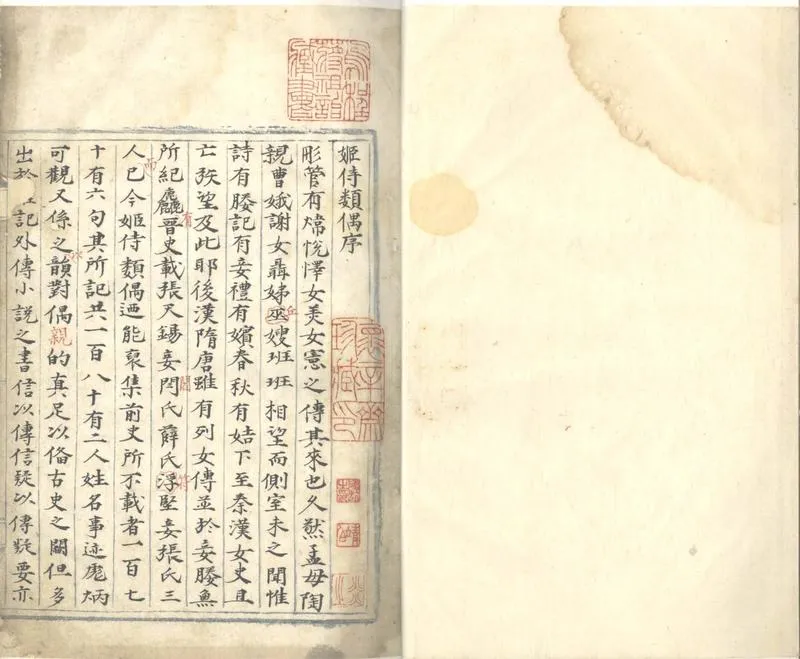 姬侍類偶序
彤管有煒悅懌女美女憲之傳其來也久然孟母陶
親曹娥謝女聶姊巫嫂班班相望而側室未之聞惟
詩有媵記有妾禮有嬪春秋有姞下至秦漢女史且
亡矧望及此耶後漢隋唐雖有列女傳並於妾媵無有
所紀晉史載張天錫妾閆氏薛氏浮堅妾張氏三
人已今姬侍類偶迺能裒集前史所不載者一百七
十有六句其所記共一百八十有二人姓名事迹彪炳
可觀又係之韻對偶親的真足以俻古史之闕但多
出於記外傳小說之書信以傳信疑以傳疑要亦